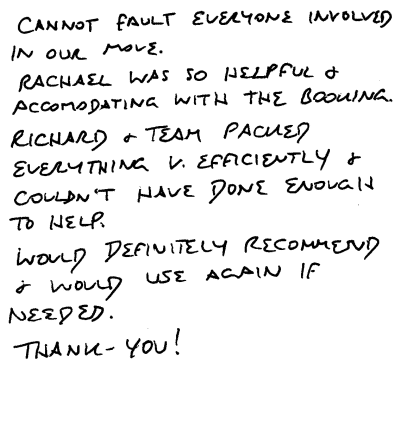 CANNOT FAULT EVERYONE INVOLVED
IN OUR MOVE.
RACHAEL WAS SO HELPFUL &
ACCOMODATING WITH THE BOOKING.
RICHARD & TEAM PACKED
EVERYTHING V. EFFICIENTLY &
COULDN'T HAVE DONE ENOUGH
TO HELP.
WOULD DEFINITELY RECOMMEND
& WOULD USE AGAIN IF
NEEDED.
THANK-YOU!